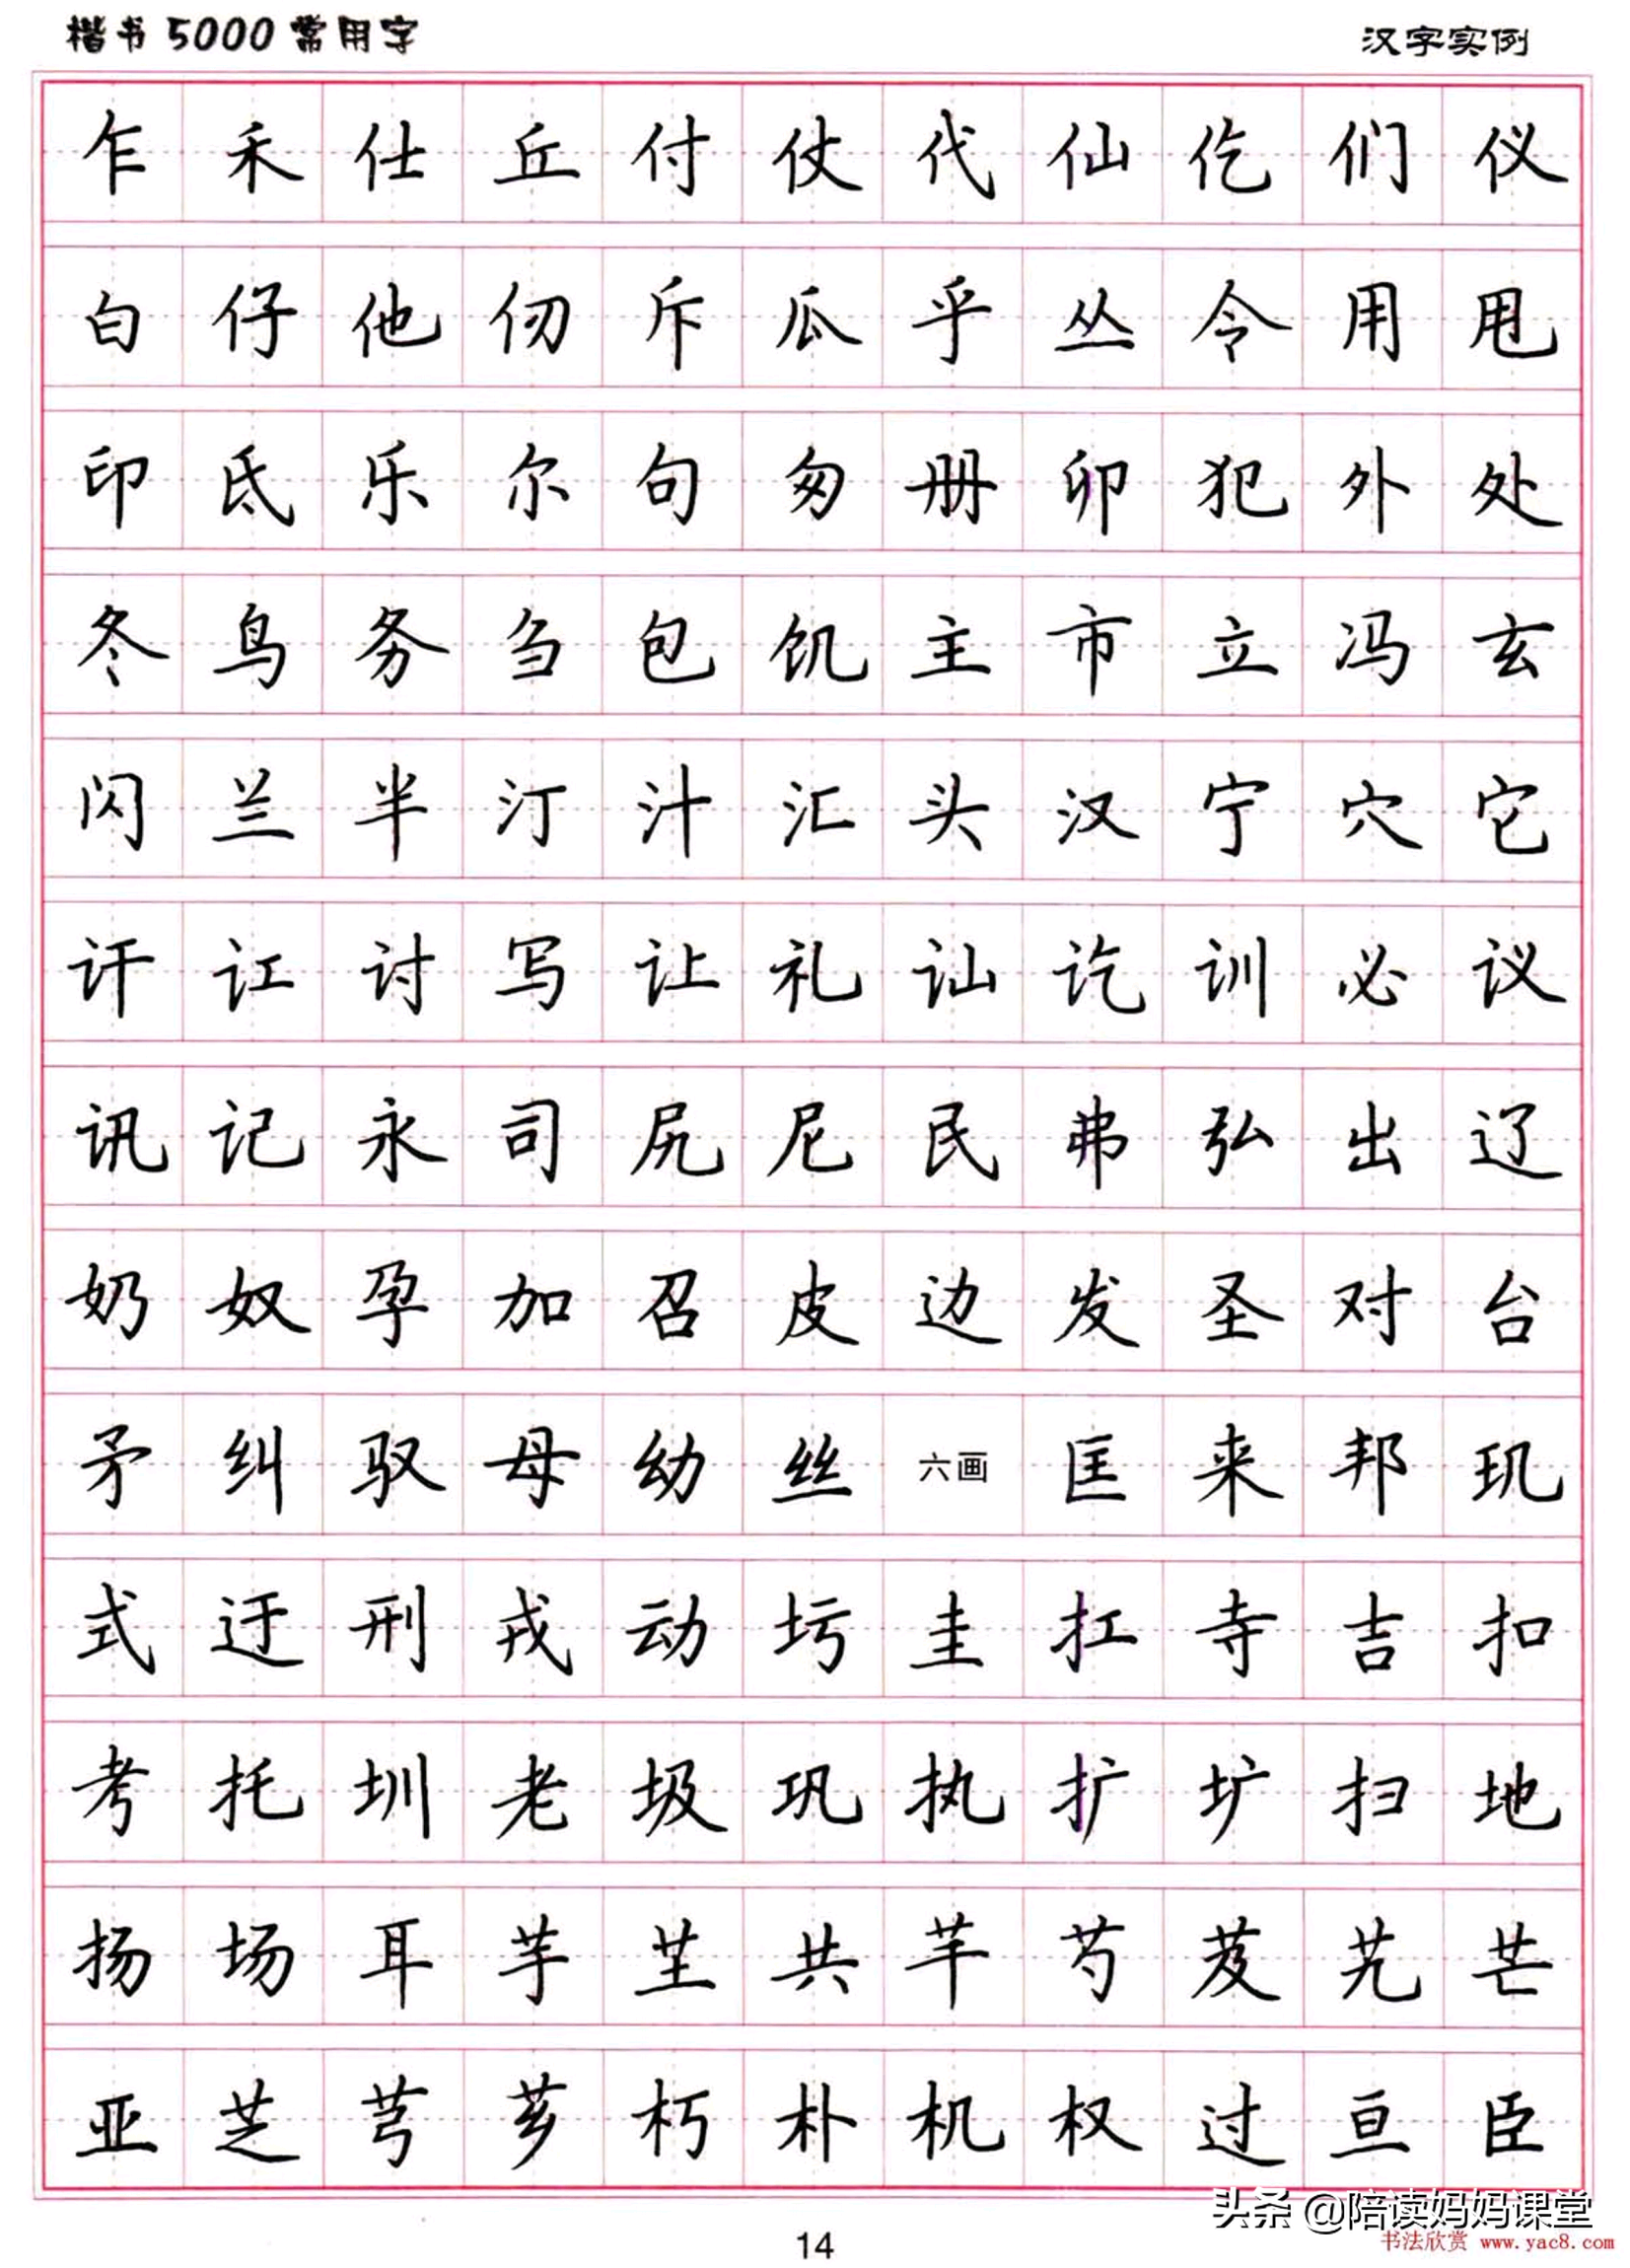 楷书5000常用字 汉字实例
乍禾仕丘付仗代仙仡们仪
白仔他仞斥瓜乎丛令用甩
印氐乐尔句匆册卯犯外处
冬鸟务刍包饥主市立冯玄
闪兰半汀汁汇头汉宁穴它
讦讧讨写让礼讪讫训必议
讯记永司尻尼民弗弘出辽
奶奴孕加召皮边发圣对台
矛纠驭母幼丝六画匡来邦玑
式迂刑戎动圬圭扛寺吉扣
考托圳老圾巩执扩圹扫地
扬场耳芋芏共芊芍芨艽芒
亚芝芎芗朽朴机权过亘臣
头条@陪读妈妈课堂
14
书法欣赏 www.yac8.com